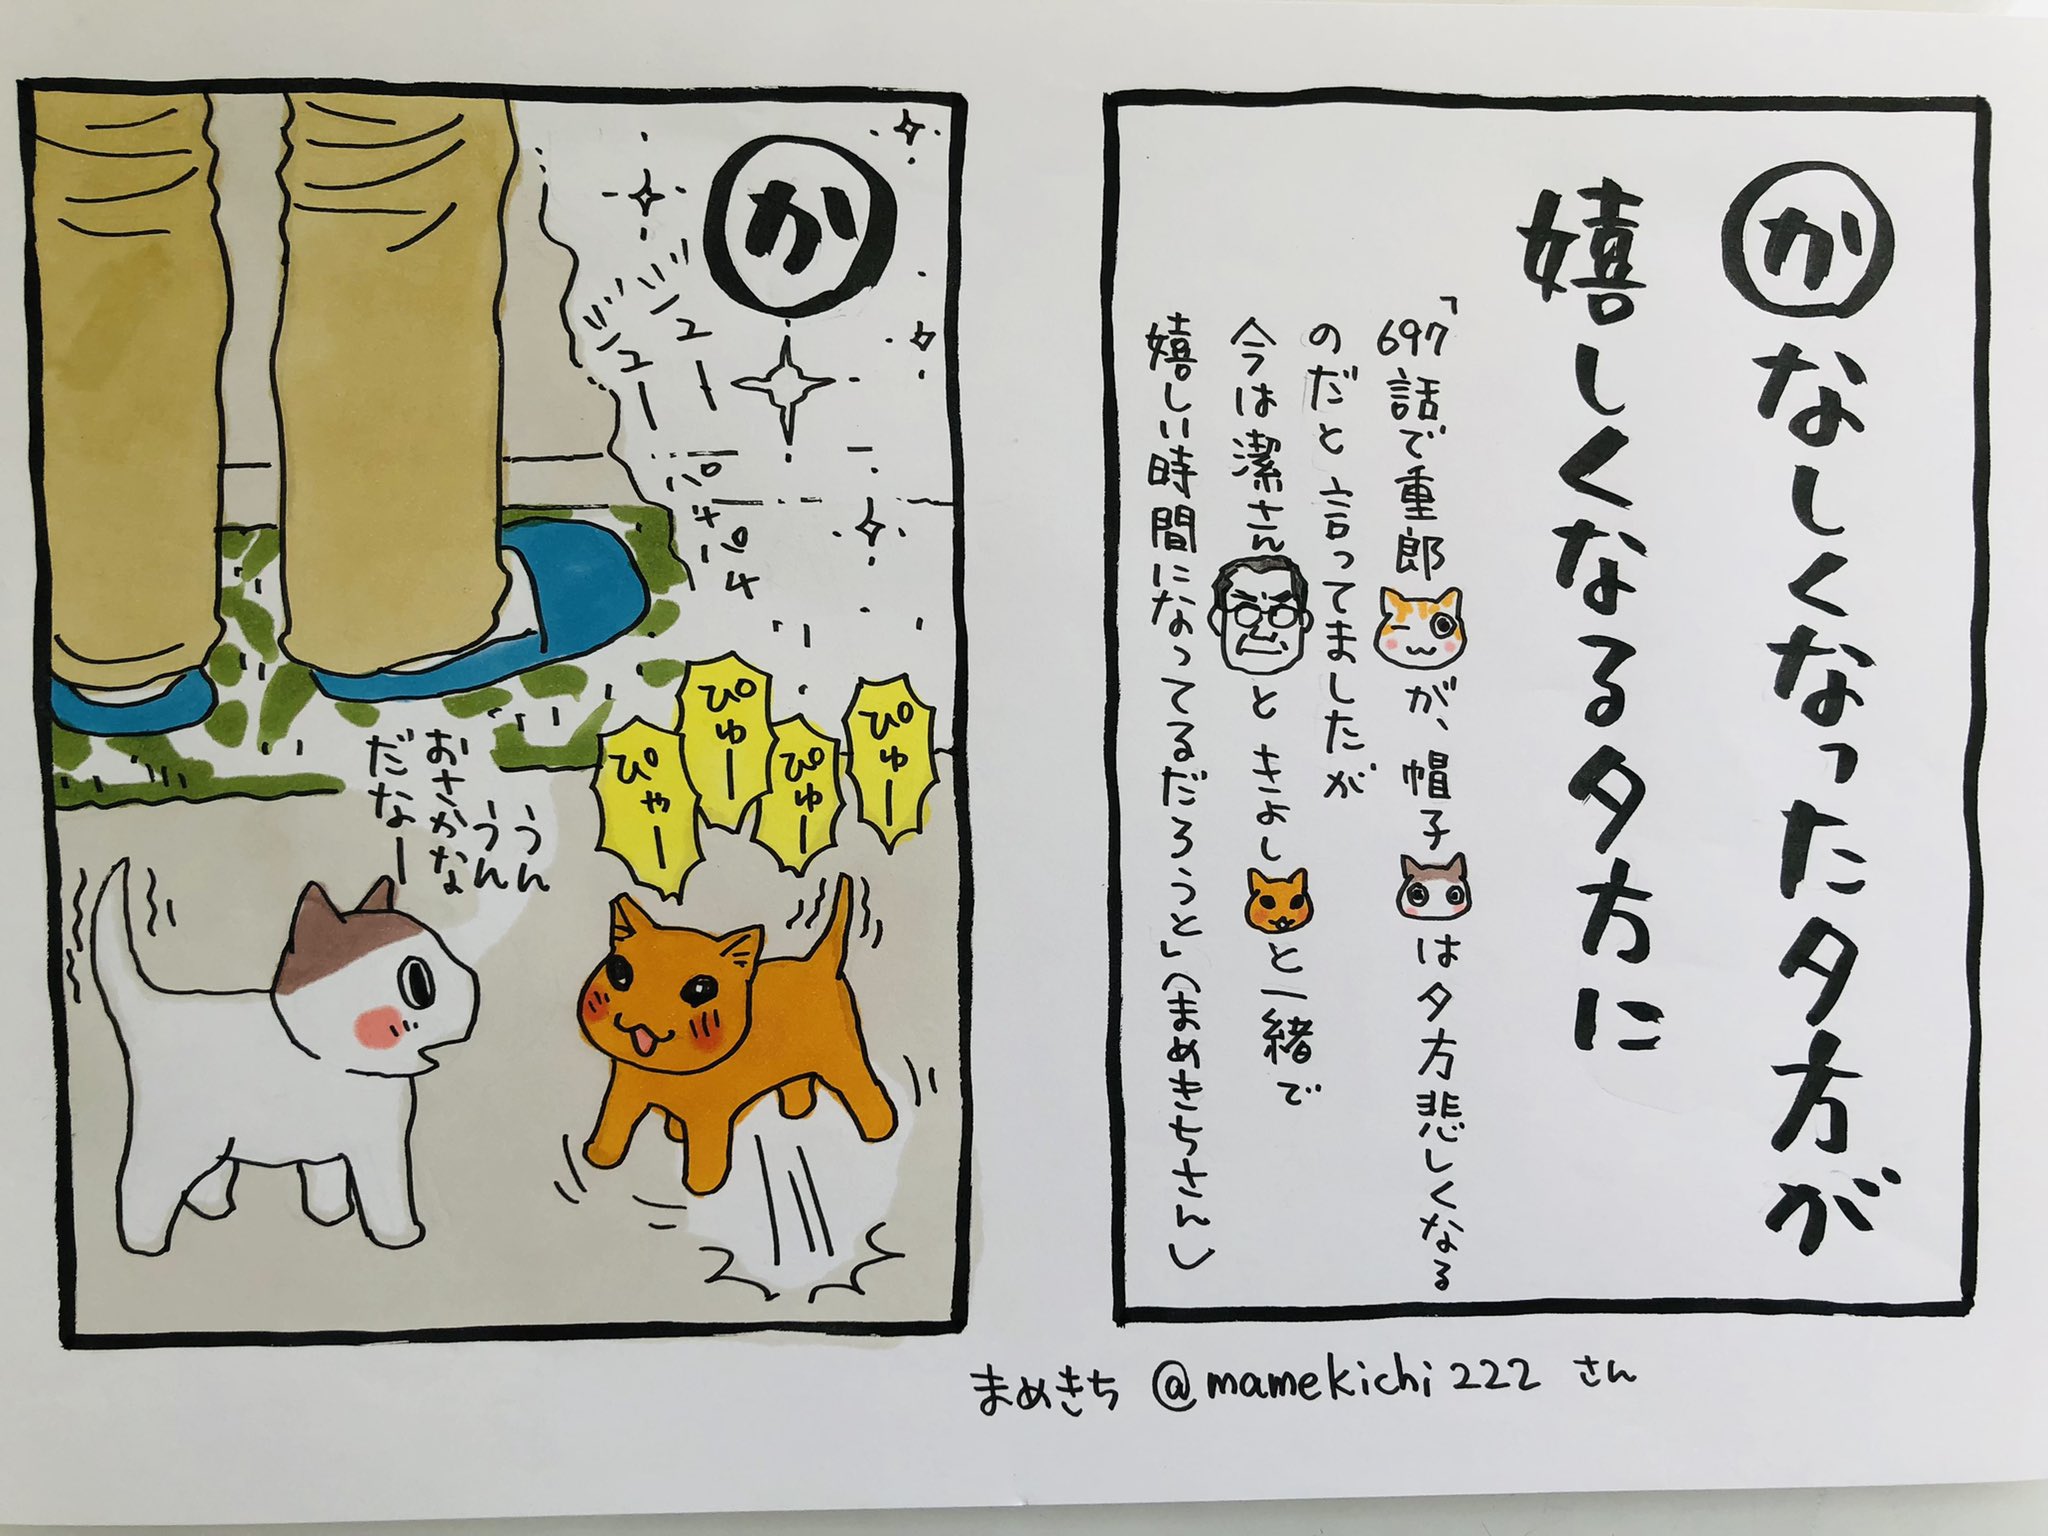 かなしくなった夕方が
嬉しくなる夕方に
「697話で重郎が、帽子は夕方悲しくなる
のだと言ってましたが
今は潔さんときよしと一緒で
嬉しい時間になってるだろうと」(まめきちさん)
か
ジュー
ジュー
パチ
パチ
ぴゅー
ぴゅー
ぴゅー
ぴゃー
うん
うん
おさかな
だなー
まめきち @mamekichi222 さん